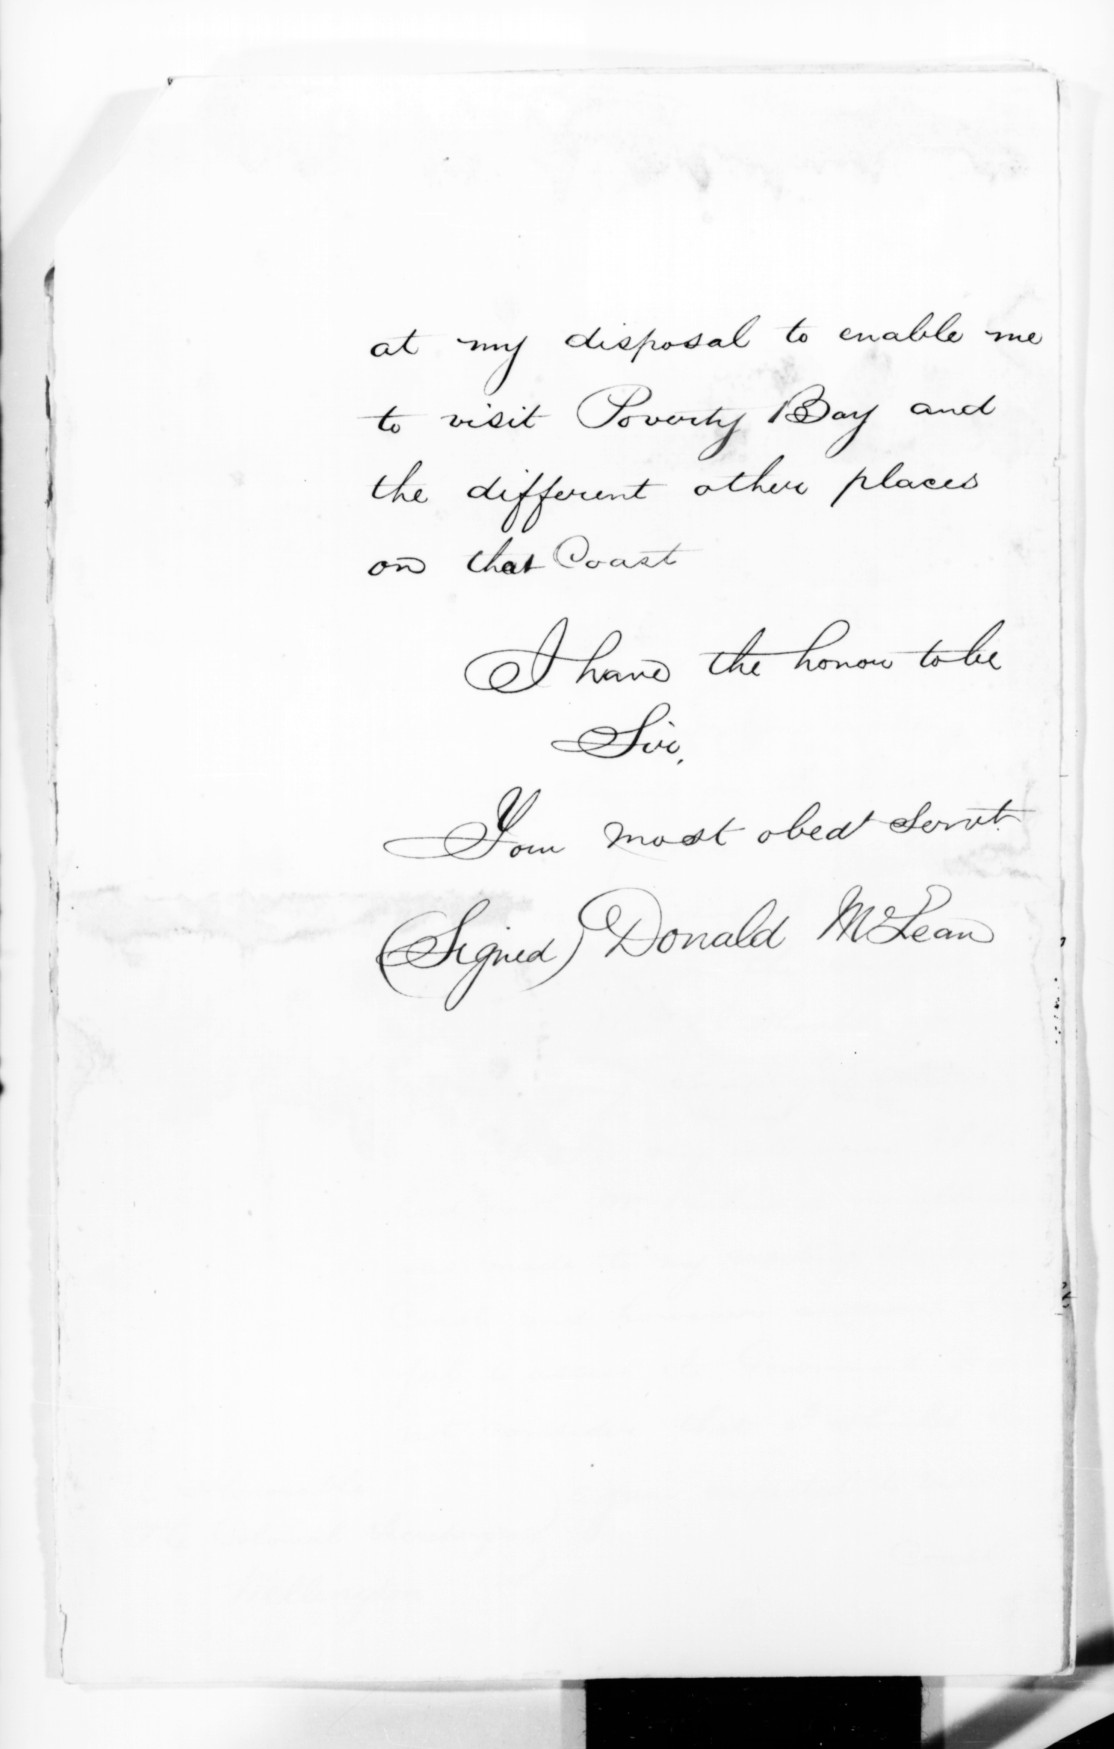 at my disposal to enable me
to visit Poverty Bay and
the different other places
on that Coast
I have the honor to be
Sir,
Your most obedt Servt.
(Signed) Donald McLean